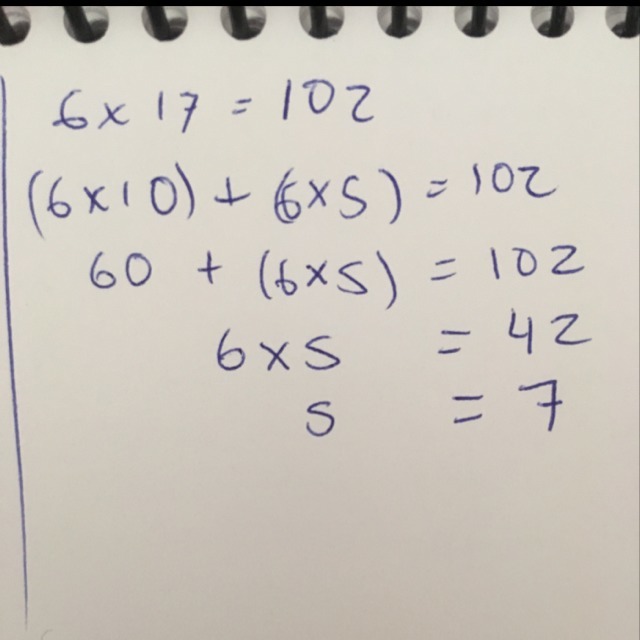 6 x 17 = 102
(6 x 10) + (6 x S) = 102
60 + (6 x S) = 102
6 x S = 42
S = 7